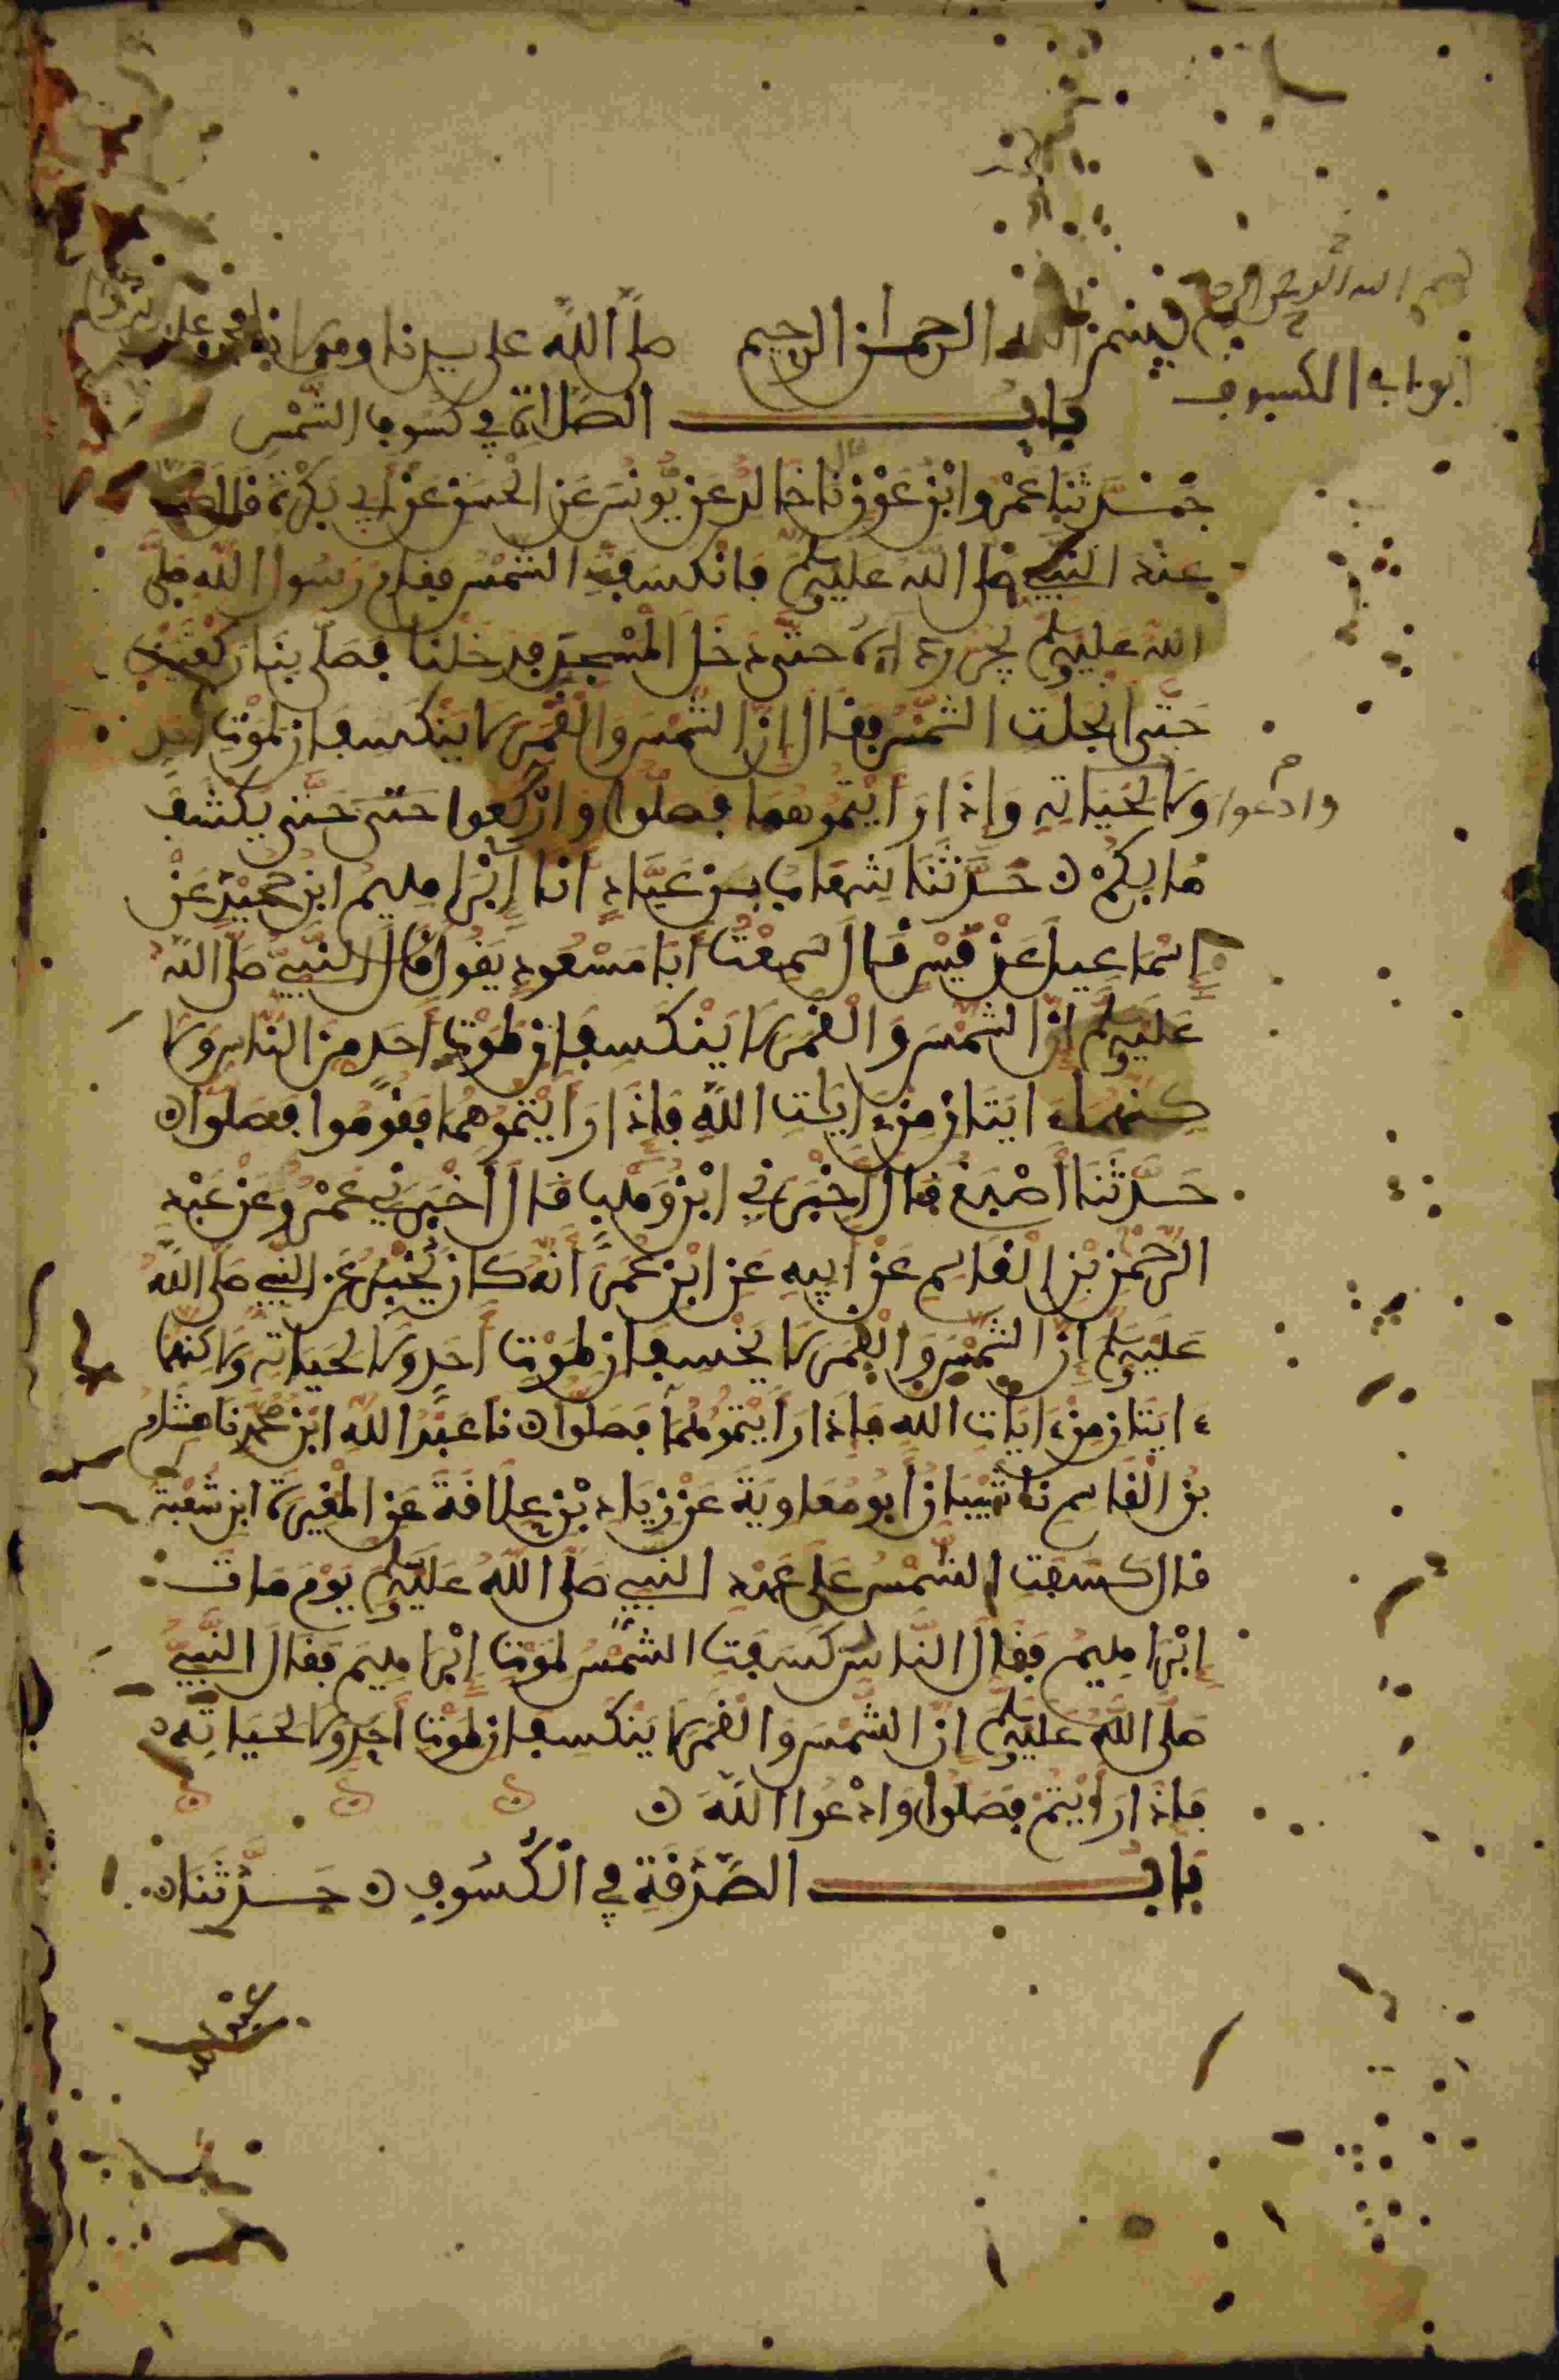 بسم الله الرحمن الرحيم
ابواب الكسوف
بسم الله الرحمان الرحيم صلى الله على سيدنا ومولانا محمد وعلى
باب الصلاة في كسوف الشمس
حدثنا عمرو ابن عون نا خالد عن يونس عن الحسن عن أبي بكرة قال
عند النبيء صلى الله عليه وسلم فانكسفت الشمس فقام رسول الله صلى
الله عليه وسلم يجر رداءه حتى دخل المسجد فدخلنا فصلى بنا ركعتين
حتى انجلت الشمس فقال إن الشمس والقمر لا ينكسفان لموت أحد
ولا لحياته وإذا رأيتموهما فصلوا واركعوا حتى حتى يكشف
وادعوا
ما بكم حدثنا شهاب بن عباد انا إبراهيم ابن حميد عن
إسماعيل عن قيس قال سمعت أبا مسعود يقول قال النبيء صلى الله
عليه وسلم إن الشمس والقمر لا ينكسفان لموت أحد من الناس ولا
كنهما ءايتان من ءايات الله فإذا رأيتموهما فقوموا فصلوا
حدثنا أصبغ قال أخبرني ابن وهب قال أخبرني عمرو عن عبد
الرحمن بن القاسم عن أبيه عن ابن عمر أنه كان يخبر عن النبي صلى الله
عليه وسلم إن الشمس والقمر لا يخسفان لموت أحد ولا لحياته ولا كنهما
ءايتان من ءايات الله فإذا رأيتموهما فصلوا نا عبد الله ابن محمد نا هشام
بن القاسم نا شيبان أبو معاوية عن زياد بن علاقة عن المغيرة ابن شعبة
قال كسفت الشمس على عهد النبيء صلى الله عليه وسلم يوم مات
إبراهيم فقال الناس كسفت الشمس لموت إبراهيم فقال النبيء
صلى الله عليه وسلم إن الشمس والقمر لا ينكسفان لموت أحد ولا لحياته
فإذا رأيتم فصلوا وادعوا الله
باب الصدقة في الكسوف حدثنا